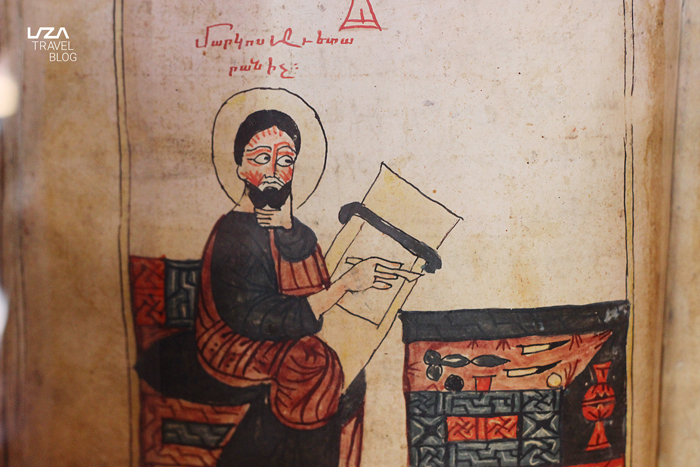 TRAVEL
BLOG
Մարկոս Աւետա
րանիչ։